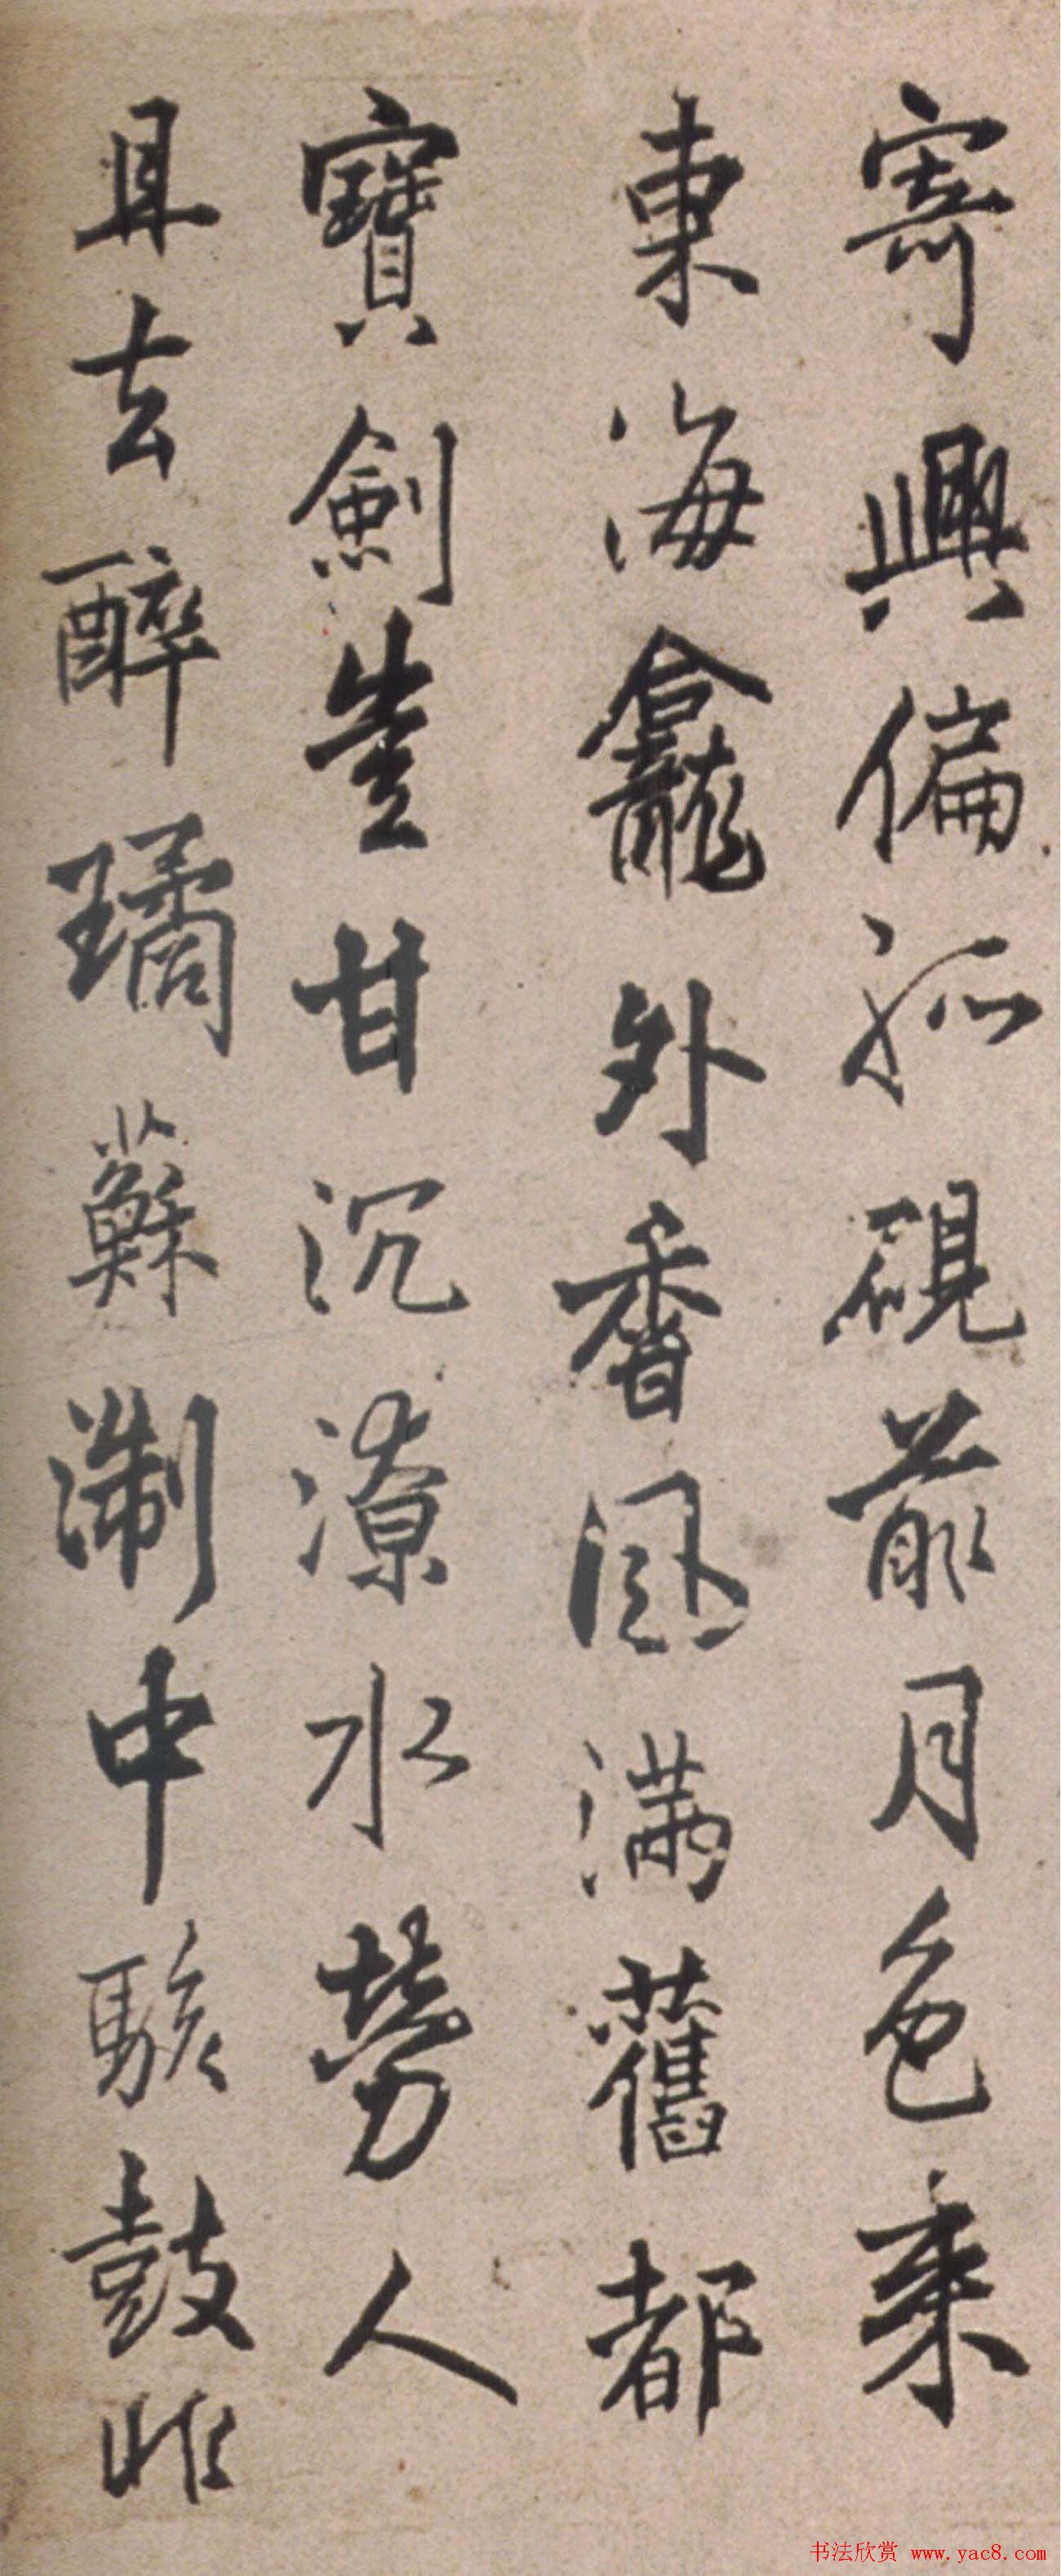 寄興偏孤硯前月色来
東海龕外香風滿舊都
寶劍豈甘沉潦水勞人
且去醉璚蘇淛中駭鼓
书法欣赏 www.yac8.com